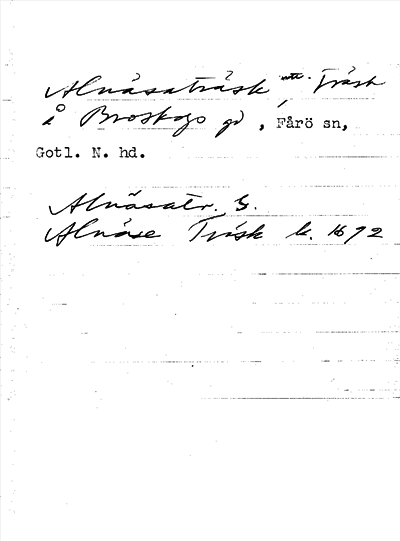 Alnäsaträsk, Träsk
å Broskogs gd, Fårö sn,
Gotl. N. hd.
Alnäsatr. G.
Alnäse Träsk k. 1692